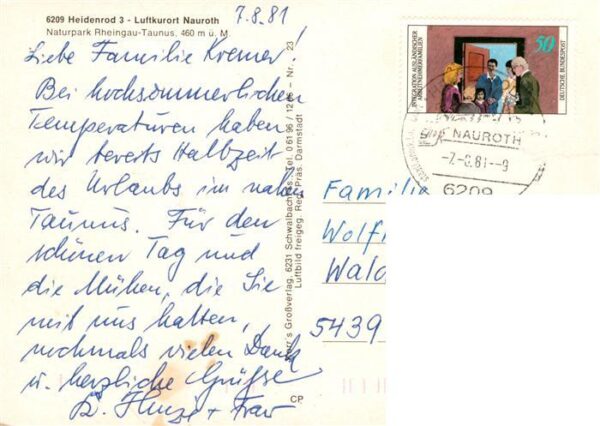 7.8.81
6209 Heidenrod 3 - Luftkurort Nauroth
Naturpark Rheingau-Taunus, 460 m ü. M.
Liebe Familie Kremer!
Bei hochsommerlichen
Temperaturen haben
wir bereits Halbzeit
des Urlaubs im nahen
Taunus. Für den
schönen Tag und
die Mühen, die Sie
mit uns hatten,
nochmals vielen Dank
u. herzliche Grüße
+ Frau
Großverlag, 6231 Schwalbach Tel. 0 61 96 / 12 Nr. 23
Luftbild freigeg. Reg. Präs. Darmstadt
CP
INTEGRATION AUSLÄNDISCHER
ARBEITNEHMERFAMILIEN
50
DEUTSCHE BUNDESPOST
NAUROTH
-7.-8.81-9
6209
Familie
Wolf
Wald
5439